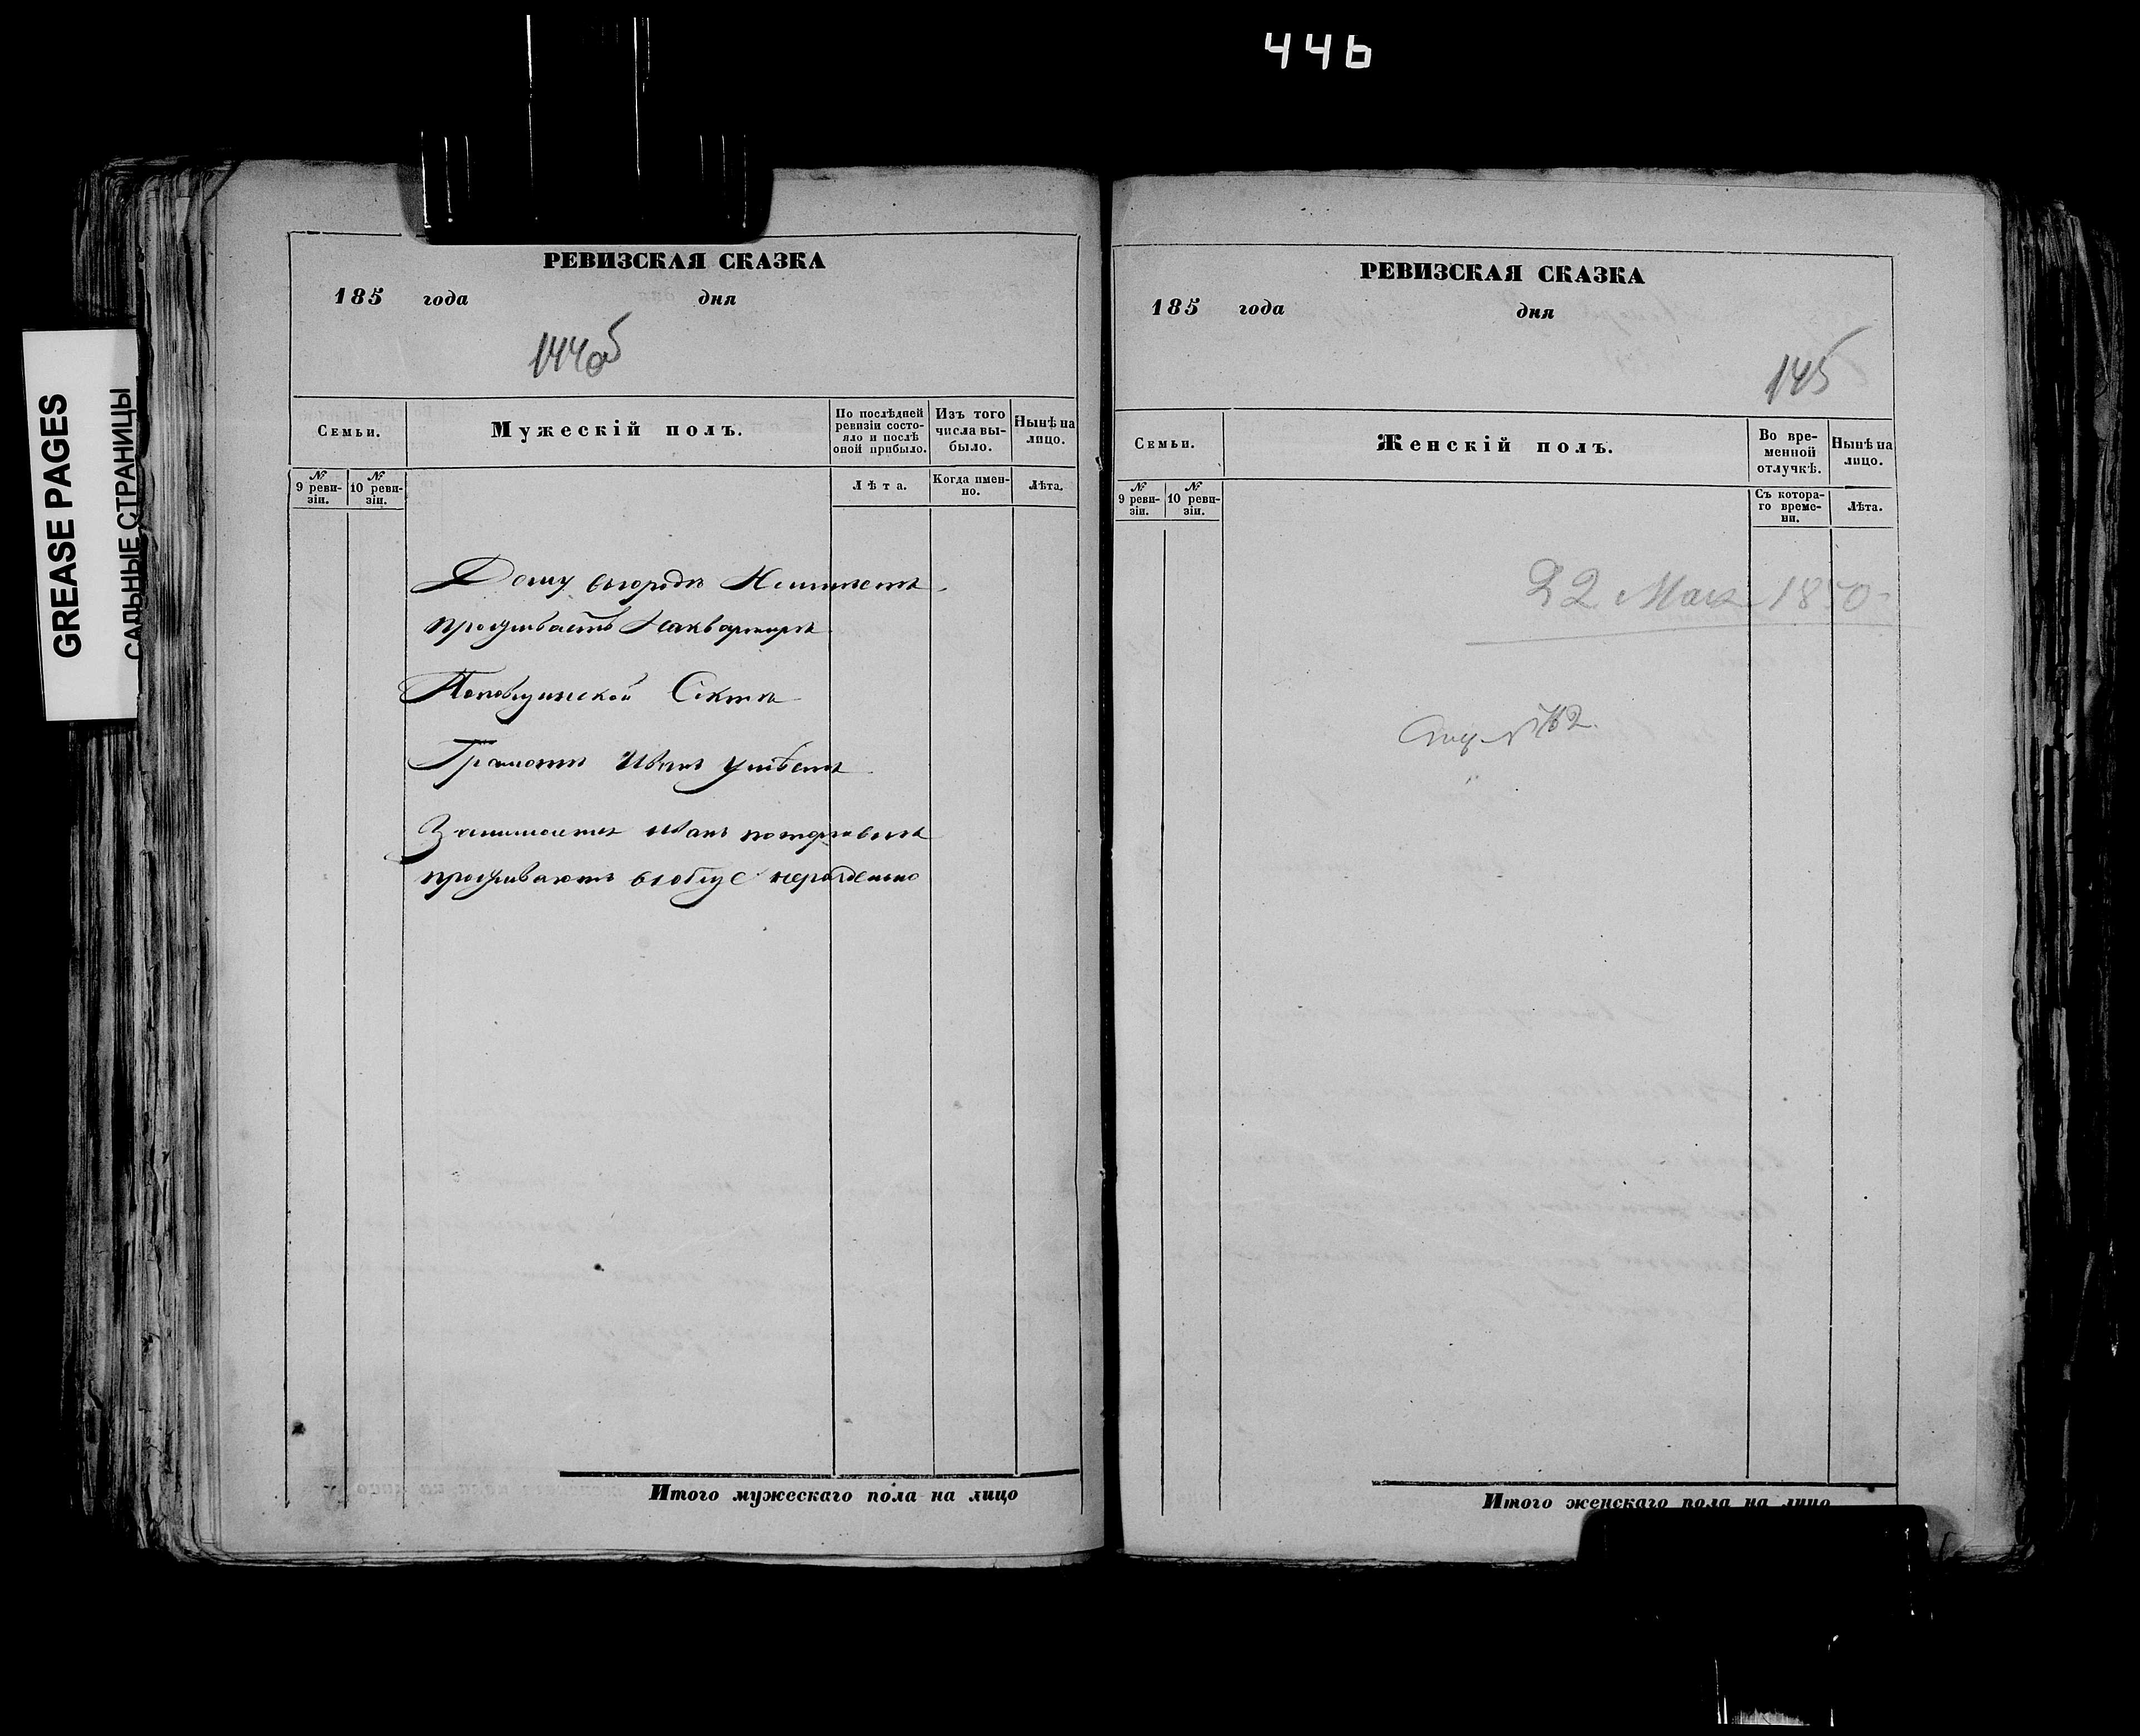 446
GREASE PAGES
САЛЬНЫЕ СТРАНИЦЫ
РЕВИЗСКАЯ СКАЗКА
185 года дня
144об
Семьи.
Мужескій полъ.
По послѣдней ревизіи состо-
яло и послѣ
оной прибыло.
Изъ того
числа вы-
было.
Нынѣ на
лицо.
№
9 реви-
зіи.
№
10 реви-
зіи.
Лѣта.
Когда имен-
но.
Лѣта.
Дому вгородѣ Неимѣетъ
проживаетъ Наквартирѣ
Поповщинской Сектѣ
Грамотѣ Иванъ умѣетъ
Занимается Иванъ
проживаютъ вобще нераздельно
Итого мужескаго пола на лицо
РЕВИЗСКАЯ СКАЗКА
185 года дня
145
Семьи.
Женскій полъ.
Во вре-
менной
отлучкѣ.
Нынѣ на
лицо.
№
9 реви-
зіи.
№
10 реви-
зіи.
Съ котора-
го време-
ни.
Лѣта.
22 1850
Итого женскаго пола на лицо